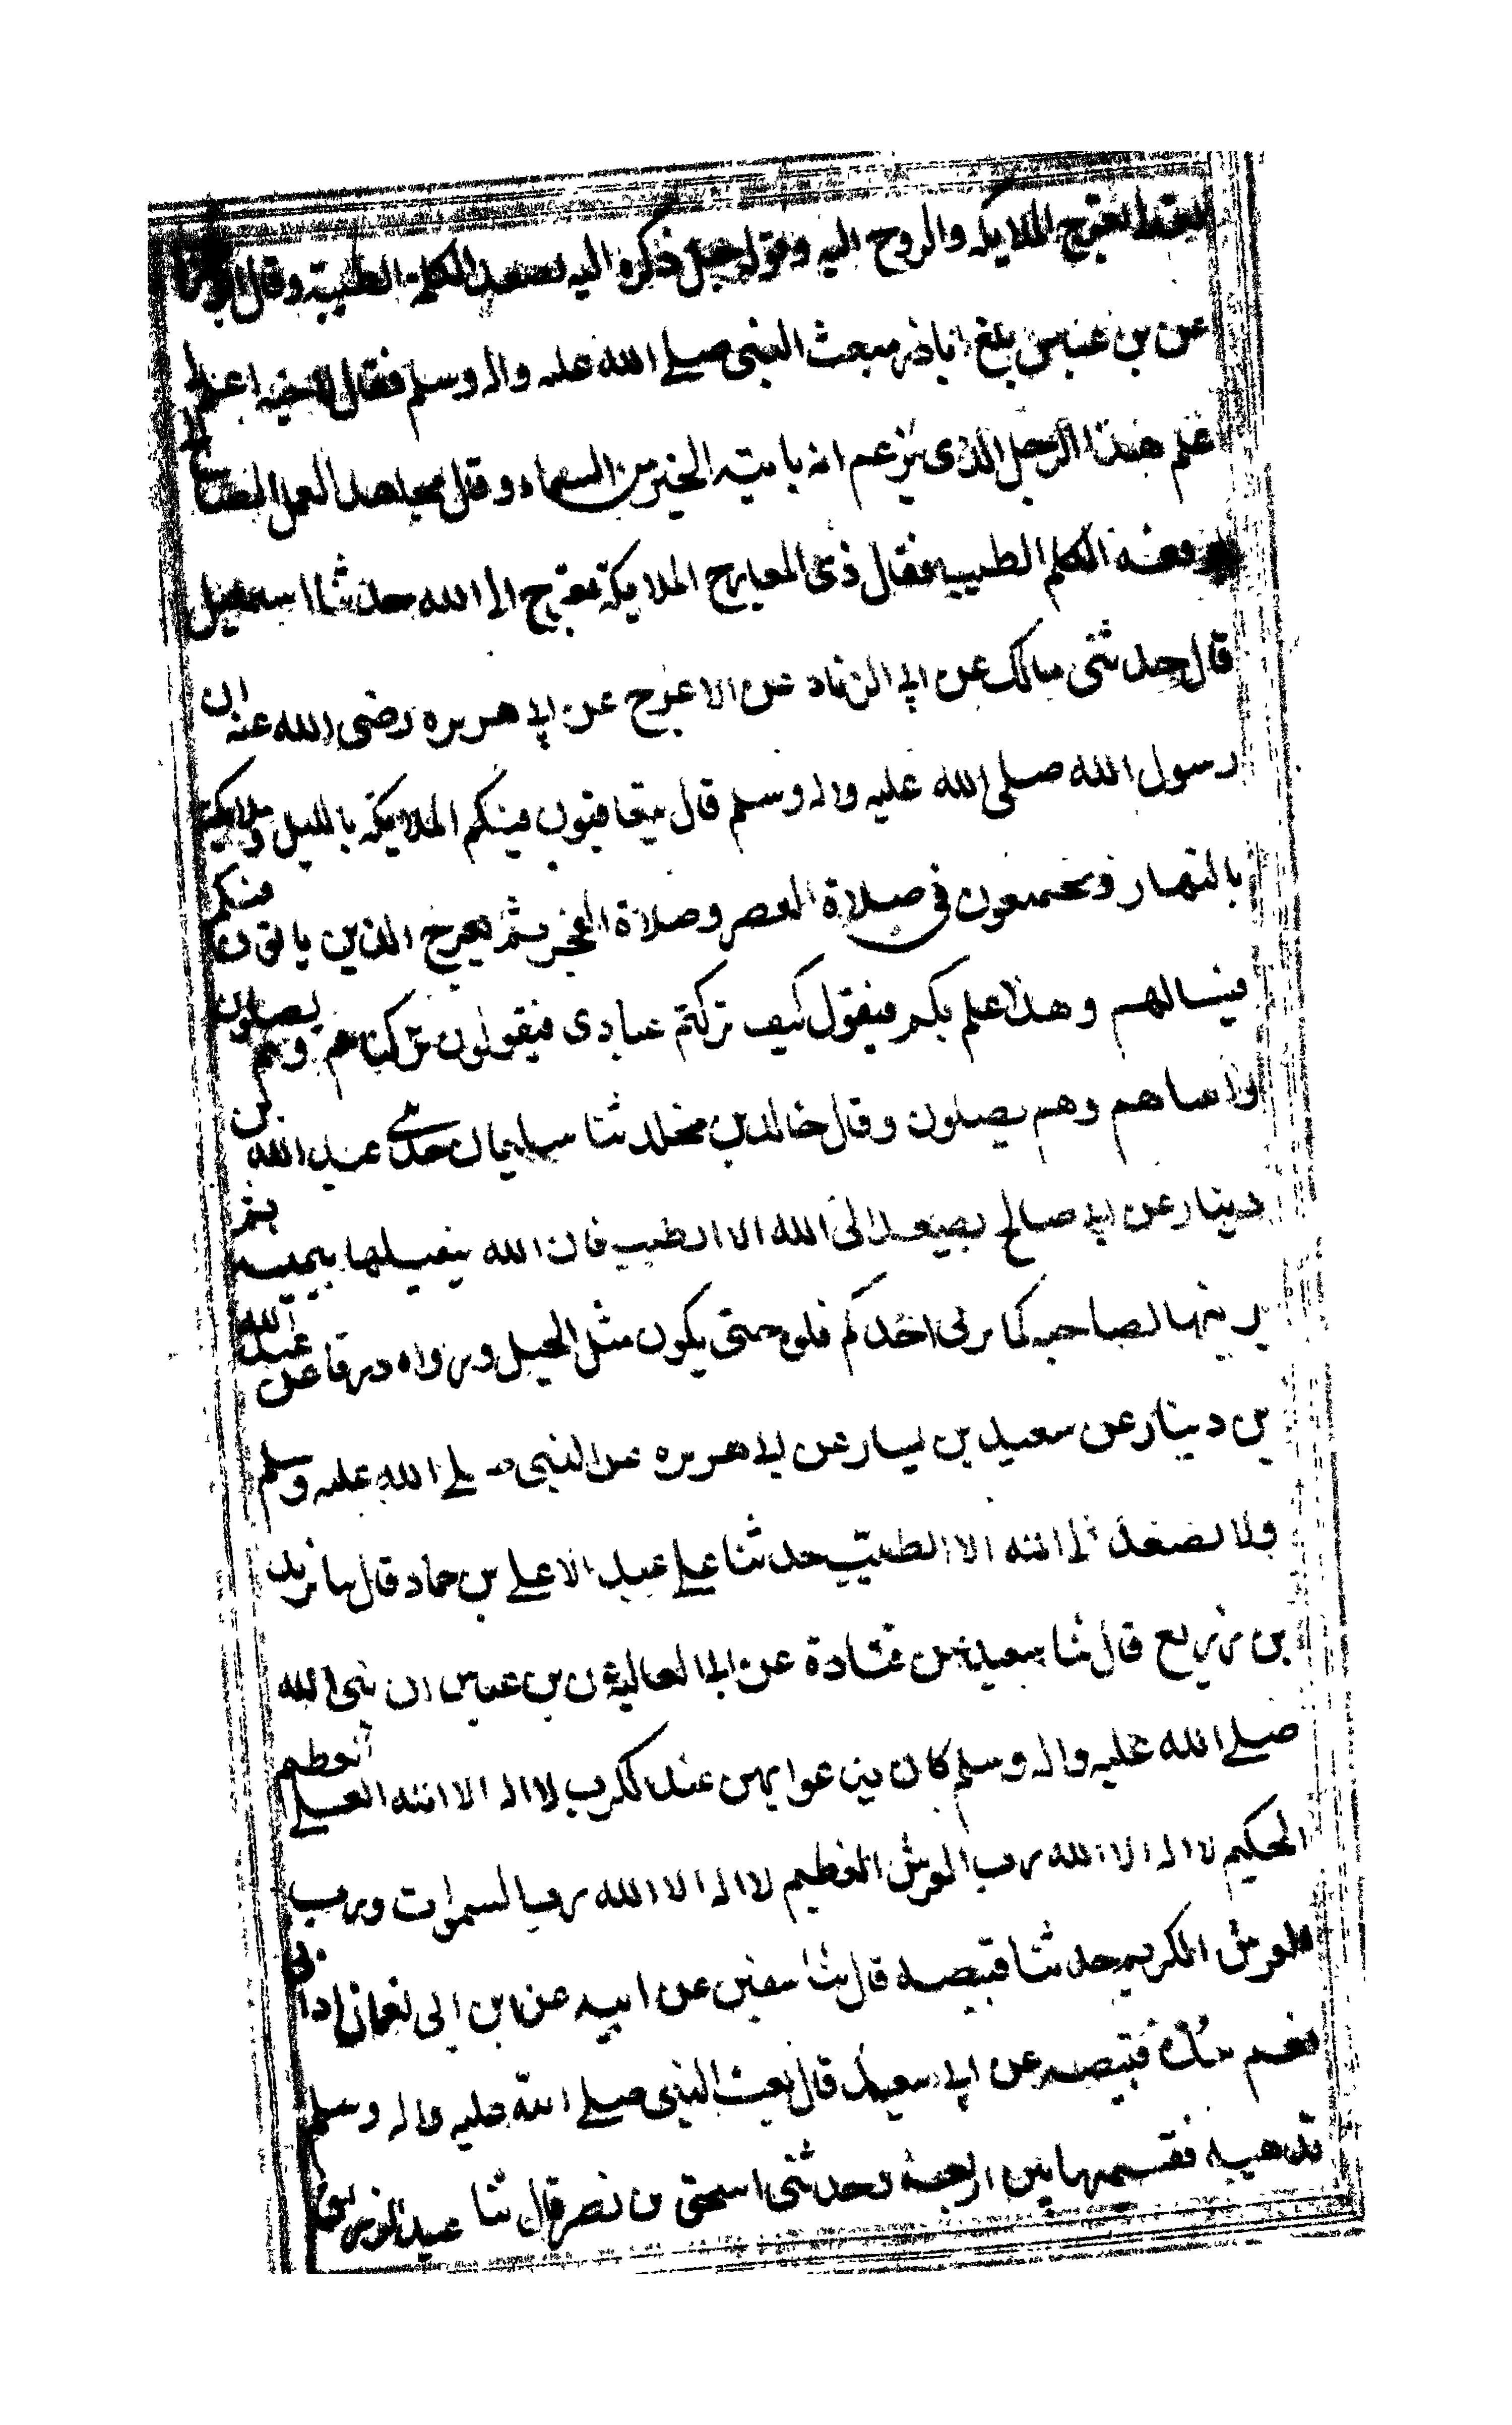 تعرج الملايكة والروح اليه وقوله جل ذكره اليه يصعد الكلم الطيب وقال ابو
عن بن عباس بلغ اباذر مبعث النبي صلى الله عليه واله وسلم فقال لاخيه اعلم لي
علم هذا الرجل الذي يزعم انه ياتيه الخبر من السماء وقال مجاهد العمل الصالح
يرفعه الكلم الطيب فقال ذي المعارج الملايكة تعرج الى الله حدثنا اسمعيل
قال حدثني مالك عن ابي الزناد عن الاعرج عن ابي هريره رضى الله عنه ان
رسول الله صلى الله عليه واله وسلم قال يتعاقبون فيكم الملايكة بالليل وملايكة
بالنهار ويجتمعون في صلاة العصر وصلاة الفجر ثم يعرج الذين باتون فيكم
فيسالهم وهذا علم بكم فيقول كيف تركتم عبادي فيقولون تركناهم وهم يصلون
واتيناهم وهم يصلون وقال خالد بن مخلد ثنا سليمان حدثني عبد الله بن
دينار عن ابي صالح يصعد الى الله الا الطيب فان الله يقبلها بيمينه ثم
يربيها لصاحبه كما يربي احدكم فلوه حتى يكون مثل الجبل ورواه ورقا عن عبد الله
بن دينار عن سعيد بن يسار عن ابي هريره عن النبي صلى الله عليه وسلم
ولا يصعد الى الله الا الطيب حدثنا علي عبد الاعلى بن حماد قال ثنا يزيد
بن زريع قال ثنا سعيد عن قتادة عن ابي العالية عن بن عباس ان نبي الله
صلى الله عليه واله وسلم كان يدعوا بهن عند الكرب لا اله الا الله العلي العظيم
الحكيم لا اله الا الله رب العرش العظيم لا اله الا الله رب السموات ورب
العرش الكريم حدثنا قبيصه قال ثنا سفين عن ابيه عن ابن ابي نعمان او ابي
نعم شك قبيصه عن ابي سعيد قال بعث النبي صلى الله عليه واله وسلم
بذهبيه فقسمها بين اربعة وحدثني اسحق بن نصر قال ثنا عبد الرزاق